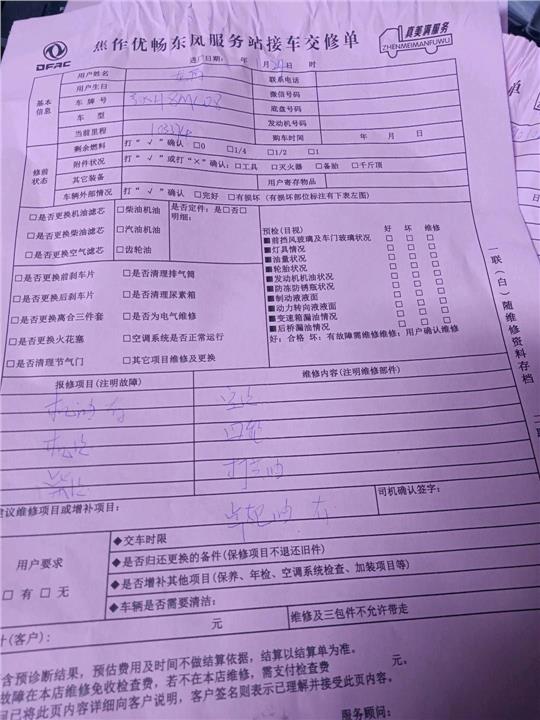 DFAC
焦作优畅东风服务站接车交修单
真美满服务
ZHENMEIMANFUWU
进厂日期: 年 月 24 日 时
基本信息
用户姓名
联系电话
用户生日
微信号码
车牌号
底盘号码
车型
发动机号码
当前里程
购车时间 年 月 日
修前状态
剩余燃料 打"√"确认 □0 □1/4 □1/2 □1
附件状况 打"√"或打"×"确认: □工具 □灭火器 □备胎 □千斤顶
其它装备
用户寄存物品
车辆外部情况 打"√"确认 □完好 □有损坏 (有损坏部位标注有下表左图)
□是否更换机油滤芯 □柴油机油 是否定件: 是□否□
明细:
□是否更换柴油滤芯 □汽油机油
□是否更换空气滤芯 □齿轮油
预检(目视) 好 坏 维修
■前挡风玻璃及车门玻璃状况 □ □ □
■灯具情况 □ □ □
■油量状况 □ □ □
■轮胎状况 □ □ □
■发动机机油状况 □ □ □
■防冻防锈瓶状况 □ □ □
■制动液液面 □ □ □
■动力转向液液面 □ □ □
■变速箱漏油情况 □ □ □
■后桥漏油情况 □ □ □
好: 合格 坏: 有故障需维修维修: 用户确认维修
□是否更换前刹车片 □是否清理排气筒
□是否更换后刹车片 □是否清理尿素箱
□是否更换离合三件套 □是否为电气维修
□是否更换火花塞 □空调系统是否正常运行
□是否清理节气门 □其它项目维修及更换
一联(白)随维修资料存档
报修项目(注明故障)
维修内容(注明维修部件)
机油
机滤
打黄油
建议维修项目或增补项目:
司机确认签字:
用户要求
□有 □无
◆交车时限
◆是否归还更换的备件(保修项目不退还旧件)
◆是否增补其他项目(保养、年检、空调系统检查、加装项目等)
◆车辆是否需要清洁:
计(客户): 元 维修及三包件不允许带走
含预诊断结果, 预估费用及时间不做结算依据, 结算以结算单为准。
故障在本店维修免收检查费, 若不在本店维修, 需支付检查费 元。
已将此页内容详细向客户说明, 客户签名则表示已理解并接受此页内容。
服务顾问: